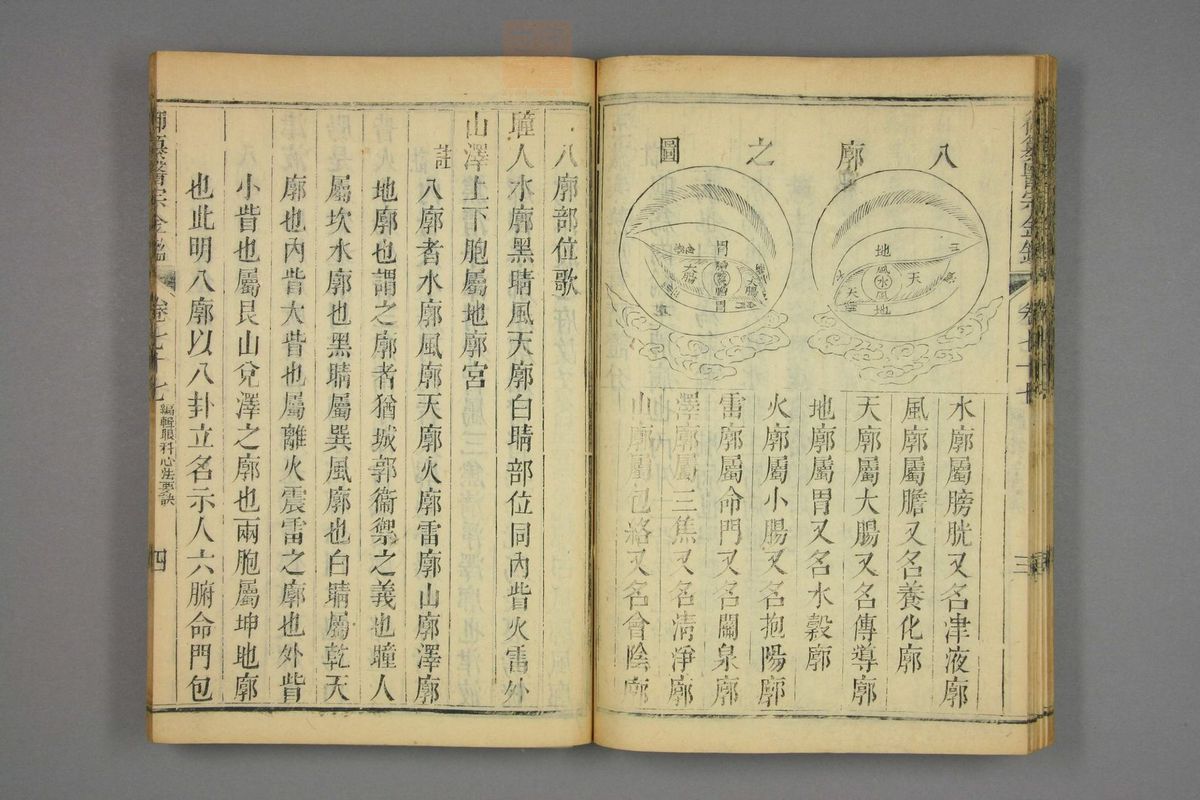 御纂醫宗金鑑 卷七十七 三
八廓之圖
地
風
水
風
地
天
天
胃
大腸
大腸
胃
水廓屬膀胱又名津液廓
風廓屬膽又名養化廓
天廓屬大腸又名傳導廓
地廓屬胃又名水穀廓
火廓屬小腸又名抱陽廓
雷廓屬命門又名關泉廓
澤廓屬三焦又名清淨廓
山廓屬包絡又名會陰廓
八廓部位歌
瞳人水廓黑睛風天廓白睛部位同內眥火雷外
山澤上下胞屬地廓宮
註八廓者水廓風廓天廓火廓雷廓山廓澤廓
地廓也謂之廓者猶城郭衞禦之義也瞳人
屬坎水廓也黑睛屬巽風廓也白睛屬乾天
廓也內眥大眥也屬離火震雷之廓也外眥
小眥也屬艮山兌澤之廓也兩胞屬坤地廓
也此明八廓以八卦立名示人六腑命門包
御纂醫宗金鑑 卷七十七 編輯眼科心法要訣 四